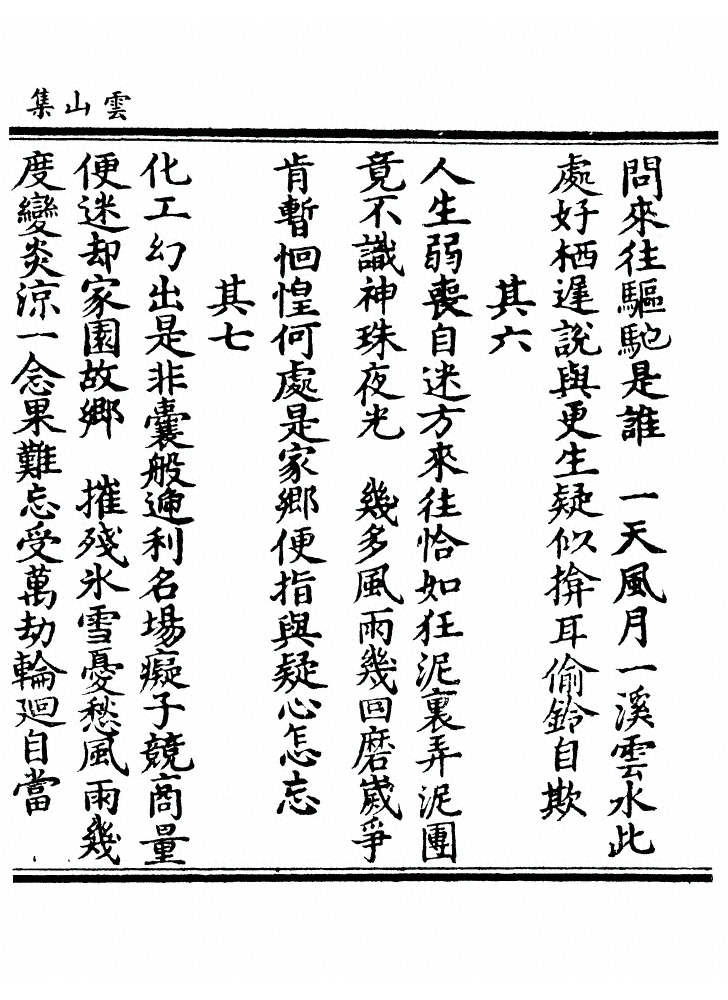 雲山集
問來往驅馳是誰　一天風月一溪雲水此
處好栖遲說與更生疑似揜耳偷鈴自欺
其六
人生弱喪自迷方來往恰如狂泥裏弄泥團
竟不識神珠夜光　幾多風雨幾回磨嵗爭
肯暫徊惶何處是家鄉便指與疑心怎忘
其七
化工幻出是非囊般逓利名場癡子競商量
便迷却家園故鄉　摧殘氷雪憂愁風雨幾
度變炎涼一念果難忘受萬劫輪迴自當